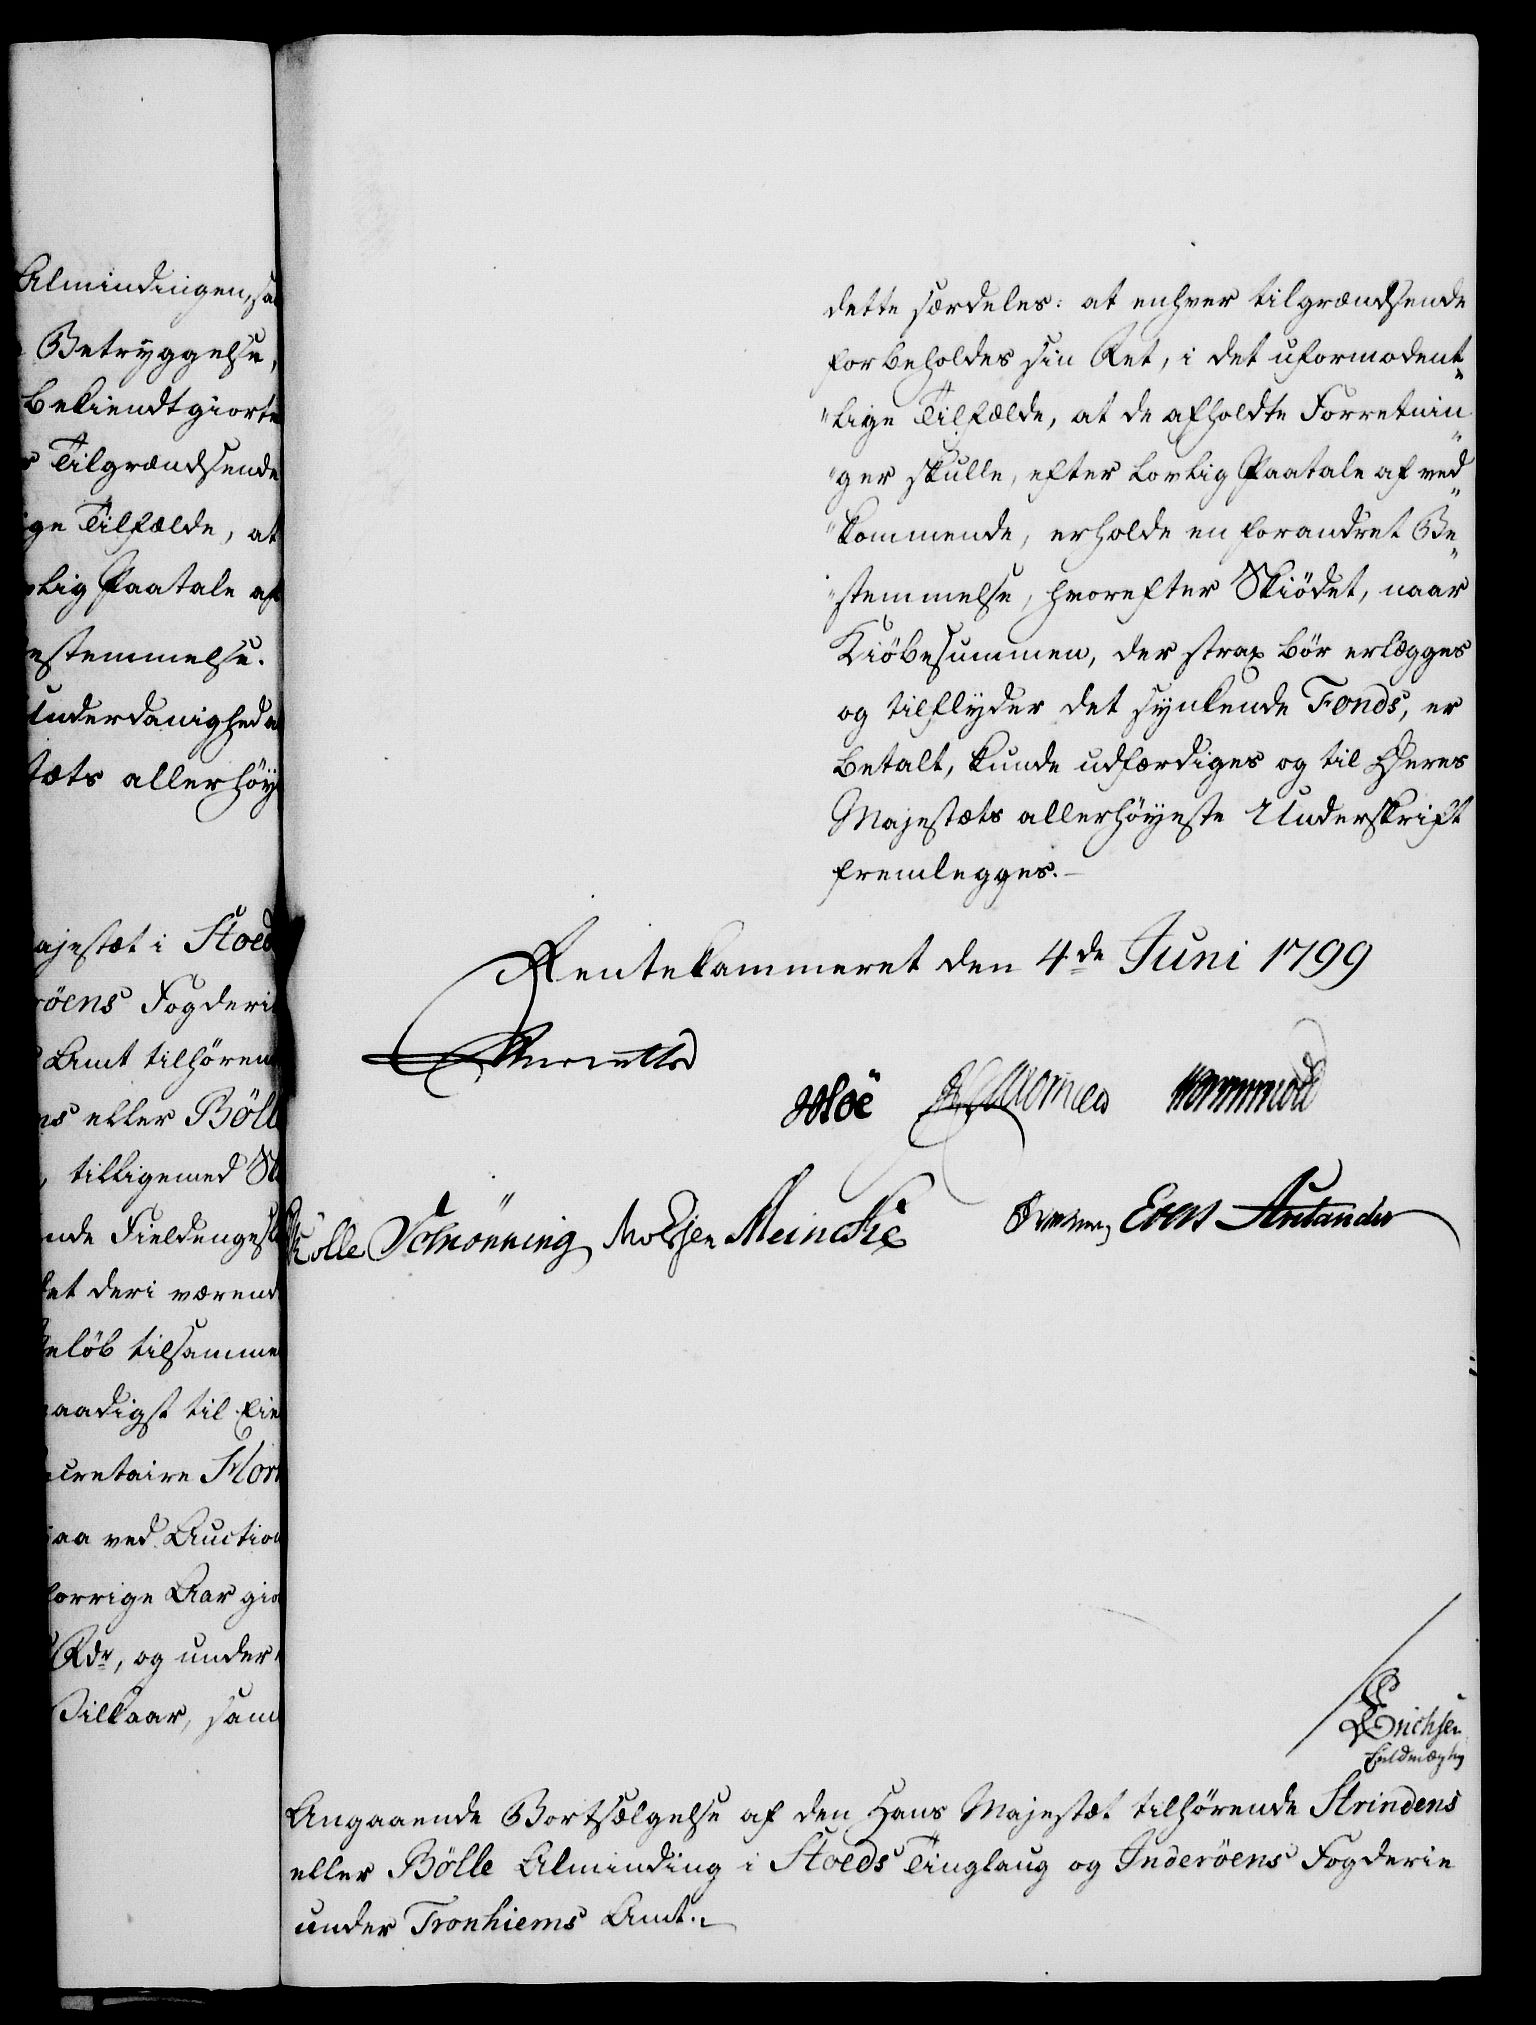 Almindingen, sa
Betryggelse,
bekiendtgiorte
Tilgrændsende
ge Tilfælde, at
lig Paatale af
estemmelse.
Underdanighed
tæts allerhöy
ajestæt i Stoed
röens Fogderi
Amt tilhören
ns eller Bölle
, tilligemed
nde Fieldenges
et deri værend
elöb tilsamme
aadigst til Eie
cretaire Hor
aa ved Auction
forrige Aar gio
Rdr, og under
Vilkaar, sam
dette særdeles: at enhver tilgrændsende
forbeholdes sin Ret, i det uformodent„
„lige Tilfælde, at de afholdte Forretnin„
„ger skulle, efter lovlig Paatale af ved„
„kommende, erholde en forandret Be„
„stemmelse, hvorefter Skiödet, naar
Kiöbesummen, der strax bör erlægges
og tilflyder det synkende Fonds, er
betalt, kunde udfærdiges og til Deres
Majestæts allerhöyeste Underskrift
fremlegges.
Rentekammeret den 4de Juni 1799
Hoë Wormskiold
Kolle Schönning Moltzen Meincke Evers
Erichsen
Fuldmægtig
Angaaende Bortsælgelse af den Hans Majestæt tilhörende Strindens
eller Bölle Alminding i Stoeds Tinglaug og Inderöens Fogderie
under Tronhiems Amt.